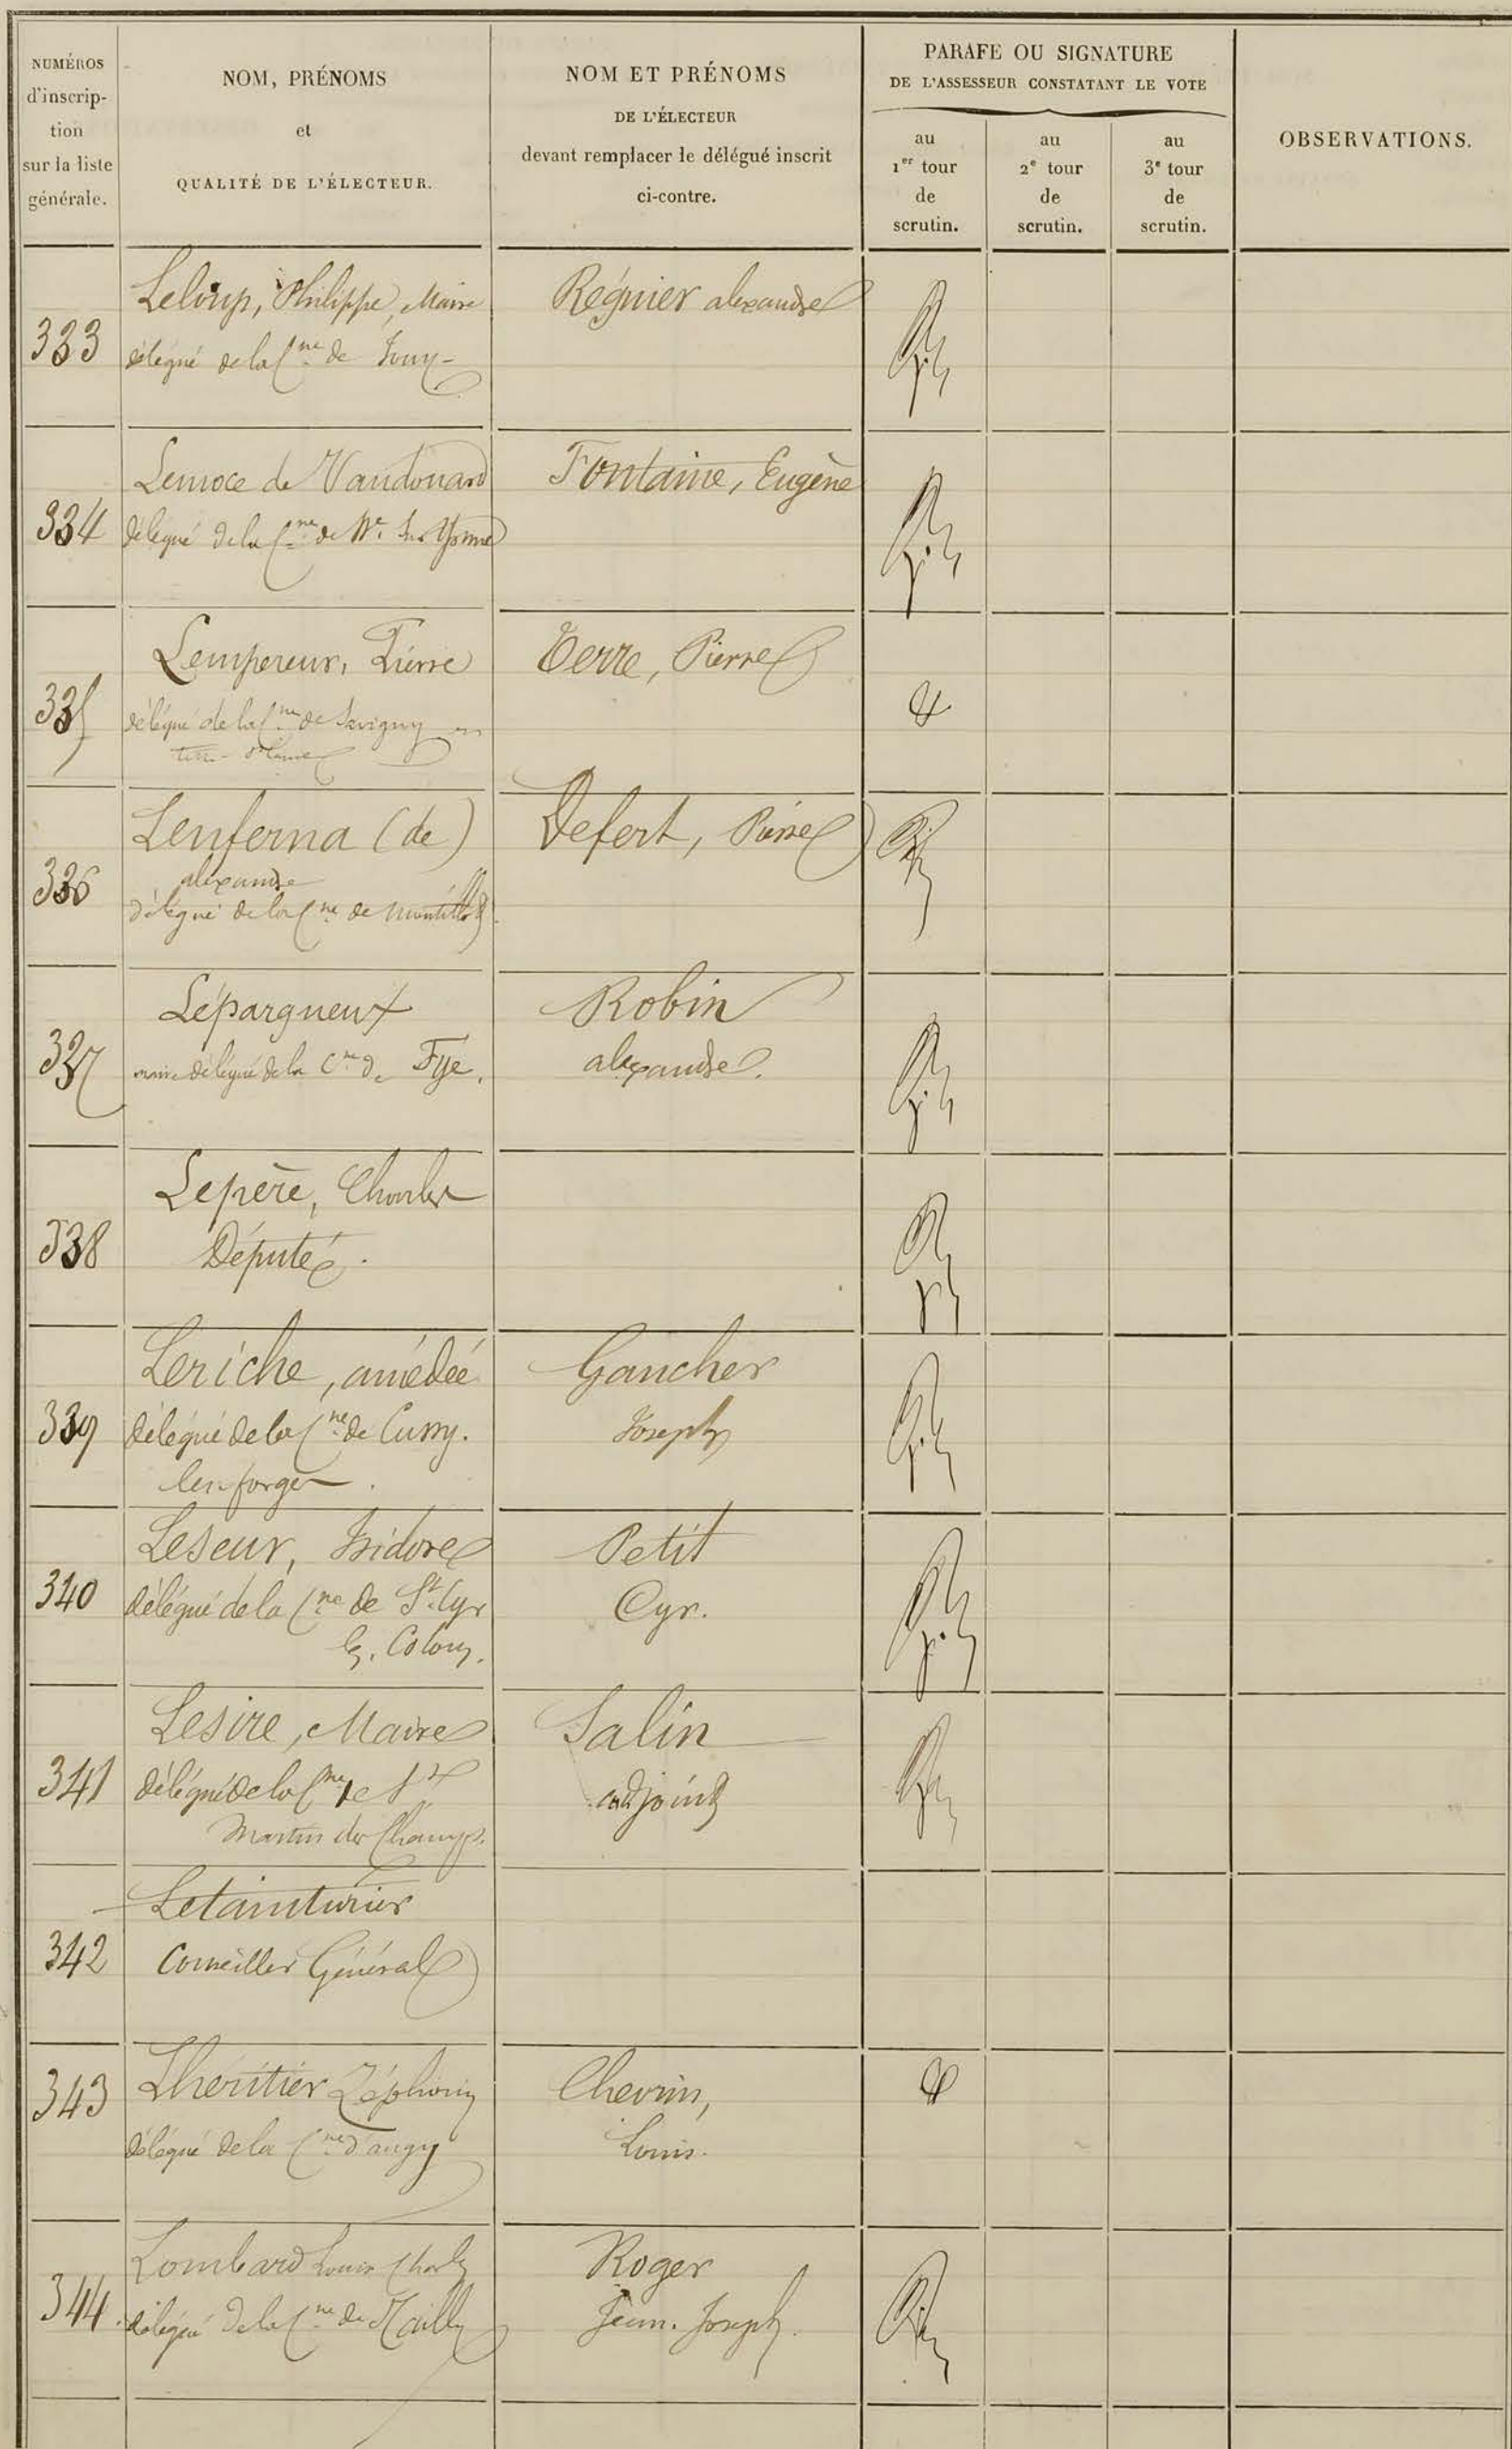 NUMÉROS
d'inscrip-
tion
sur la liste
générale.
NOM, PRÉNOMS
et
QUALITÉ DE L'ÉLECTEUR.
NOM ET PRÉNOMS
DE L'ÉLECTEUR
devant remplacer le délégué inscrit
ci-contre.
PARAFE OU SIGNATURE
DE L'ASSESSEUR CONSTATANT LE VOTE
au
1er tour
de
scrutin.
au
2e tour
de
scrutin.
au
3e tour
de
scrutin.
OBSERVATIONS.
333
Leloup, Philippe, Maire
délégué de la Cne de Jouy-
Régnier alexandre
334
Lemoce de Vaudouard
délégué de la Cne de Ve sur Yonne
Fontaine, Eugène
335
Lempereur, Pierre
délégué de la Cne de Savigny en
terre-plaine
Terre, Pierre
336
Lenferna (de)
alexandre
délégué de la Cne de Montillot
Defert, Pierre
337
Lépargneux
maire délégué de la Cne de Fye.
Robin
alexandre.
338
Lepère, Charles
Député.
339
Leriche, amédée
délégué de la Cne de Cussy.
les forges.
Gaucher
Joseph
340
Leseur, Isidore
délégué de la Cne de St. Cyr
les. Colons.
Petit
Cyr.
341
Lesire, Maire
délégué de la Cne de St
Martin des Champs.
Salin
adjoint
342
Letainturier
Conseiller Général
343
Lhéritier Zéphirin
délégué de la Cne d'augy
Chevrin,
Louis.
344.
Lombard Louis Charles
délégué de la Cne de Mailly
Roger
Jean. Joseph.